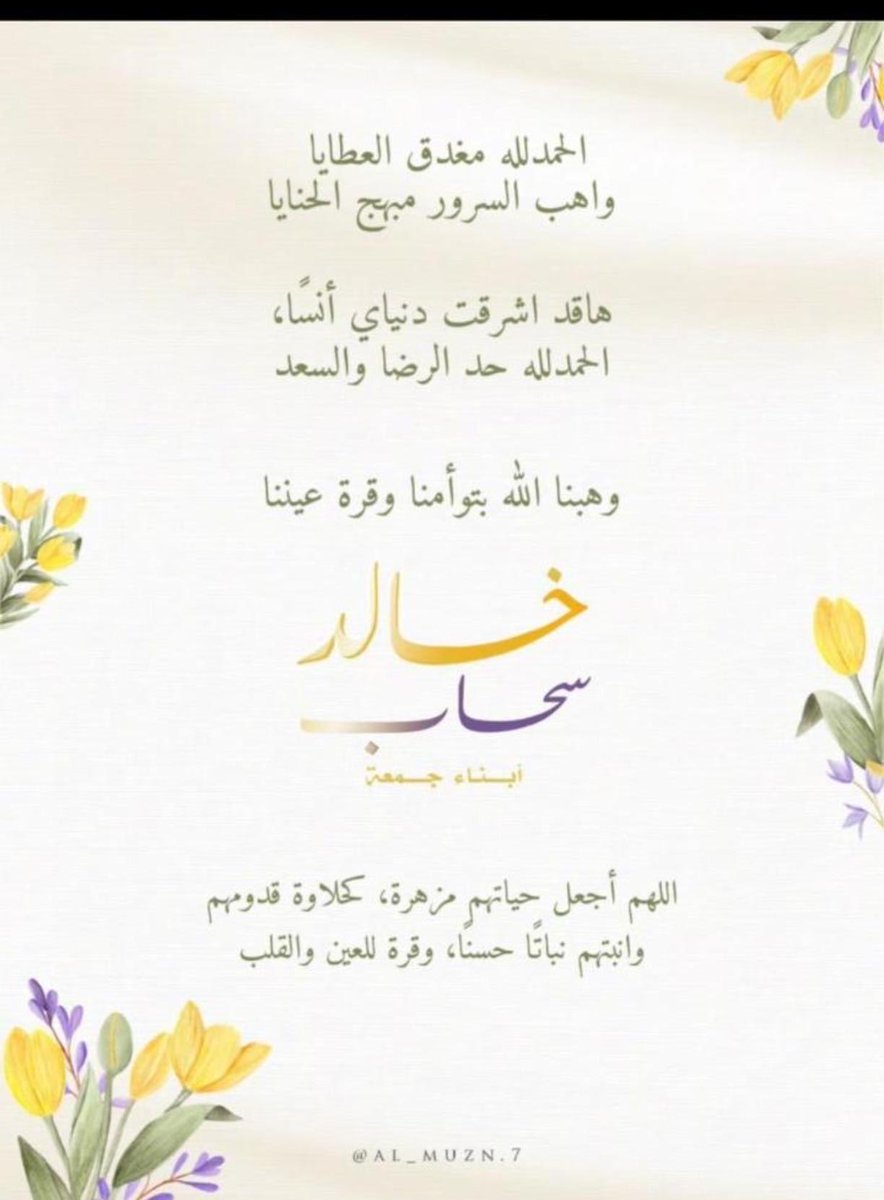 الحمدلله مغدق العطايا
واهب السرور مبهج الحنايا
هاقد اشرقت دنياي أنسًا،
الحمدلله حد الرضا والسعد
وهبنا الله بتوأمنا وقرة عيننا
خالد
سحاب
أبناء جمعة
اللهم أجعل حياتهم مزهرة، كحلاوة قدومهم
وانبتهم نباتًا حسنًا، وقرة للعين والقلب
@AL_MUZN.7